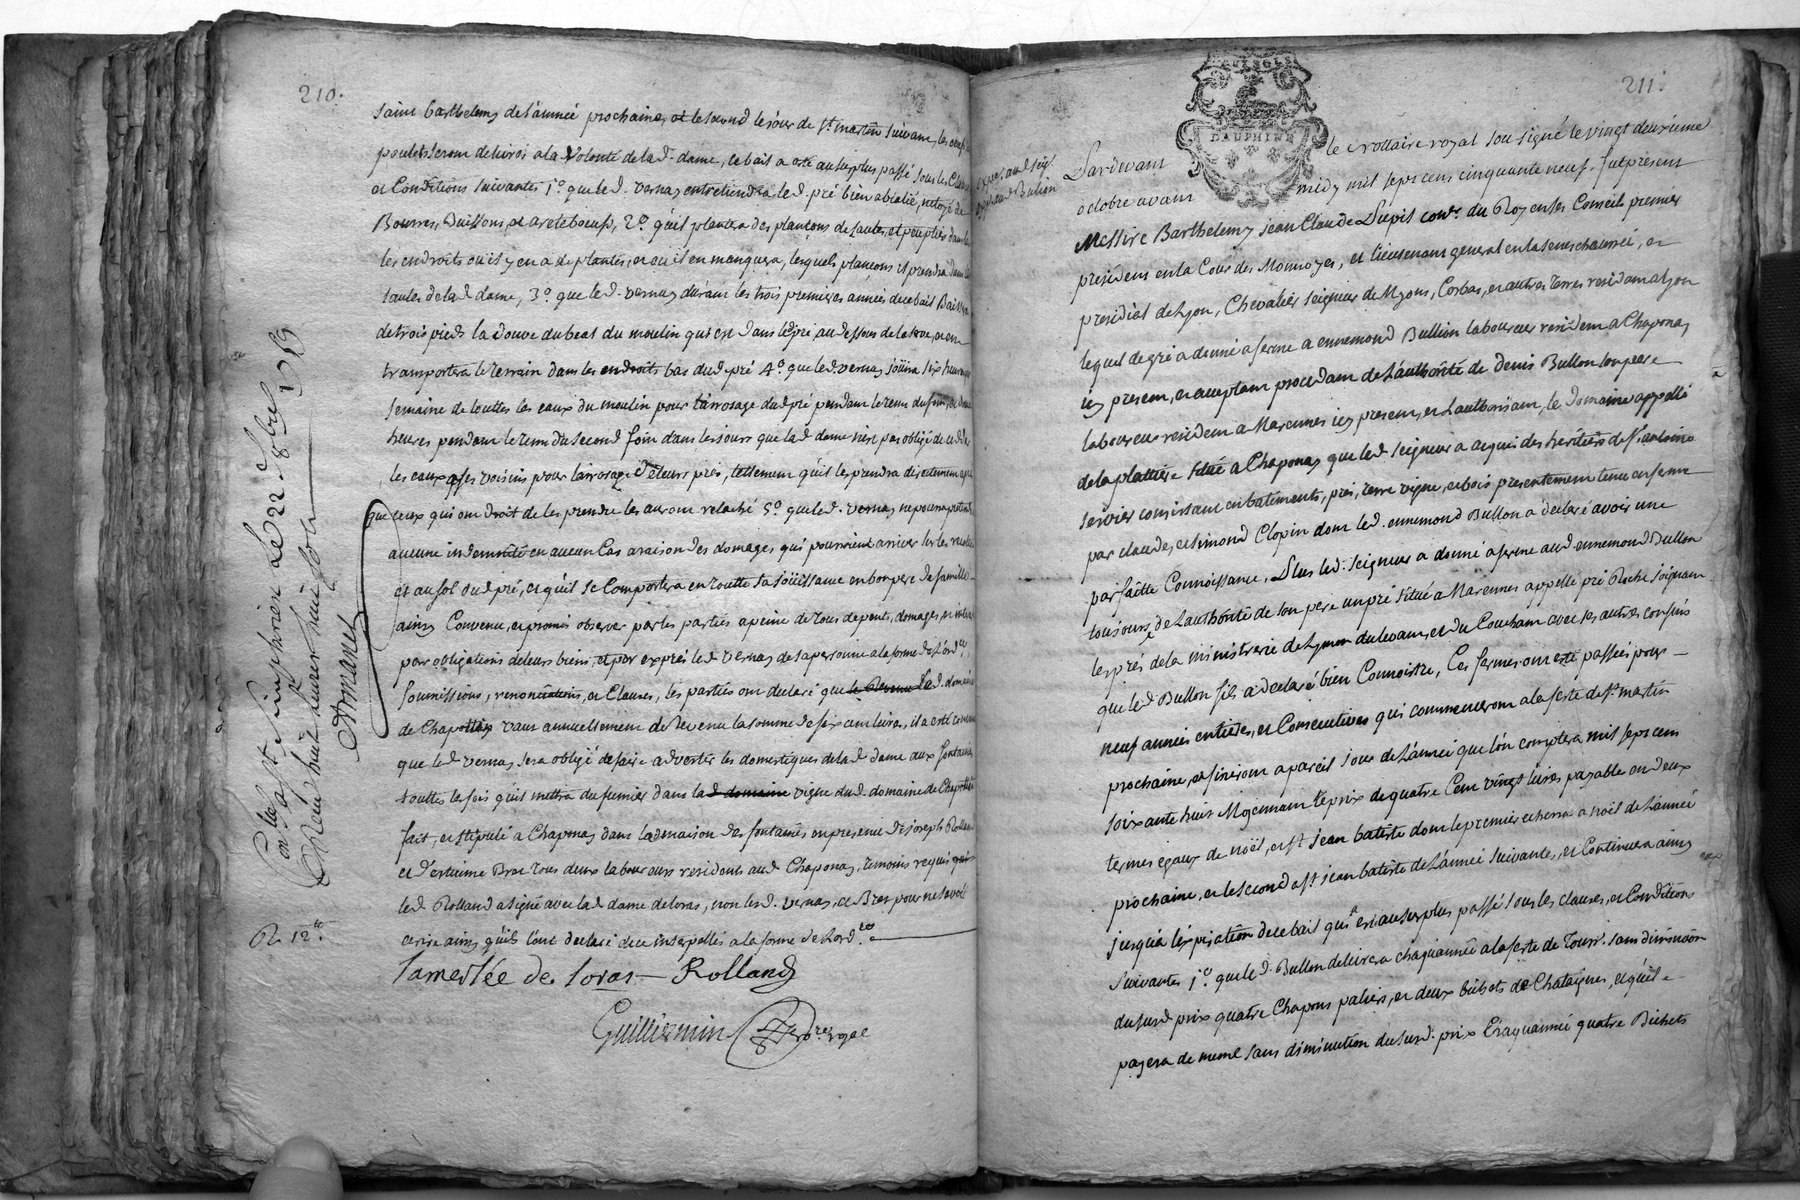 210.
saint barthelemy de l'année prochaine, et le second le jour de st martin suivant, les
poulets seront delivrés a la volonté de lad. dame, ce bail a esté au surplus passé sous les
et Conditions suivantes 1.o que led. vernay entretiendra led. pré bien netoyé de
Bournes, Buissons, et aretebœufs, 2.o qu'il plantera des plançons de saules, et peupliers dans
les endroits ou il y en a de plantés, et ou il en manquera, lesquels plançons il prendra dans les
saules de lad. dame, 3.o que led. vernay durant les trois premieres années de ce bail
de trois pieds la douve du beal du moulin qui est dans led. pré au dessous de la
transportera le terrain dans les endroits bas dud. pré 4.o que led. vernay jouira six heures
semaine de touttes les eaux du moulin pour l'arrosage dud. pré pendant le tems du foin,
heures pendant le tems du second foin dans les jours que lad. dame n'est pas obligé de
les eaux a ses voisins pour l'arrosage de leurs prés, tellement qu'il les prendra directement
que ceux qui ont droit de les prendre les auront relaché 5.o que led. vernay ne pourra
aucune indemnité en aucun Cas a raison des domages qui pourroient arriver sur les
et au sol dud. pré, et qu'il se Comportera en toutte sa jouissance en bon pere de famille
ainsy Convenu, et promis observer par les parties a peine de tous depents, domages,
par obligations de leurs biens, et par exprés led. vernay de sa personne a la forme de l'ord.ce,
soumissions, renonciations, et Clauses, les parties ont declaré que le Revenu lad. domaine
de Chapottin vaut annuellement de Revenu la somme de six cent livres, il a esté convenu
que led. vernay sera obligé de faire advertir les domestiques de lad. dame aux fontaines
touttes les fois qu'il mettra du fumier dans la d. domaine vigne dud. domaine de Chapottin
fait, et stipulé a Chaponay dans la maison des fontaines en presence de joseph Rolland
et d'estienne Brac tous deux laboureurs residents aud. Chaponay, temoins requis
led. Rolland a signé avec lad. dame de loras, non led. vernay, et Brac pour ne savoir
ecrire ainsy qu'ils l'ont declaré de ce interpellés a la forme de l'ord.ce
lameslée de loras Rolland
Guillermin no.re royal
Con.lé a st simphorien le 22 8bre 1759
Reçu huit livres huit sols
Amanet
R. 12 s
211.
DAUPHINE
Pardevant le nottaire royal sousigné le vingt deuxieme
octobre avant midy mil sept cens cinquante neuf, fut present
Messire Barthelemy jean Claude Dupuis con.er du Roy en ses Conseils premier
president en la Cour des Monnoyes, et lieutenant general en la senechaussée, et
presidial de Lyon, Chevalier seigneur de Myons, Corbas, et autres terres resident a lyon
lequel de gré a donné a ferme a ennemond Bullion laboureur resident a Chaponay
icy present, et acceptant procedant de l'authorité de denis Bullon son pere
laboureur resident a Marennes icy present, et l'authorisant, le domaine appellé
de la platiere situé a Chaponay que led. seigneur a acquis des heritiers de s.r antoine
servier consistant en batiments, prés, terre vigne, et bois presentement tenu en ferme
par claude, et simond Clopin dont led. ennemond Bullon a declaré avoir une
parfaitte Connoissance, Plus led. seigneur a donné a ferme aud. ennemond Bullon
toujours de l'authorité de son pere un pré situé a Marennes appellé pré Roche joignant
les prés de la ministrerie de du levant, et du Couchant avec ses autres confins
que led. Bullon fils a declaré bien Connoistre, Ces fermes ont esté passées pour
neuf années entieres, et Consecutives qui commenceront a la feste de st martin
prochaine, et finiront a pareil jour de l'année que l'on comptera mil sept cent
soixante huit Moyennant le prix de quatre Cent vingt livres payable en deux
termes egaux de noël, et st jean batiste dont le premier echerra a noël de l'année
prochaine, et le second a st jean batiste de l'année suivante, et Continuera ainsy
jusqu'a l'expiration de ce bail qui est au surplus passé sous les clauses, et Conditions
suivantes 1.o que led. Bullon delivrera chaqu'année a la feste de Touss. sans diminution
du susd. prix quatre Chapons paliers, et deux bichets de Chataignes, et qu'il
payera de meme sans diminution du susd. prix Chaqu'année quatre Bichets